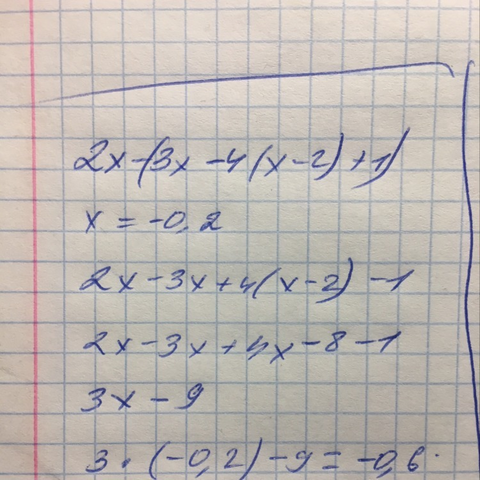 2x-(3x-4(x-2)+1)
x = -0,2
2x-3x+4(x-2)-1
2x-3x+4x-8-1
3x-9
3·(-0,2)-9=-0,6·